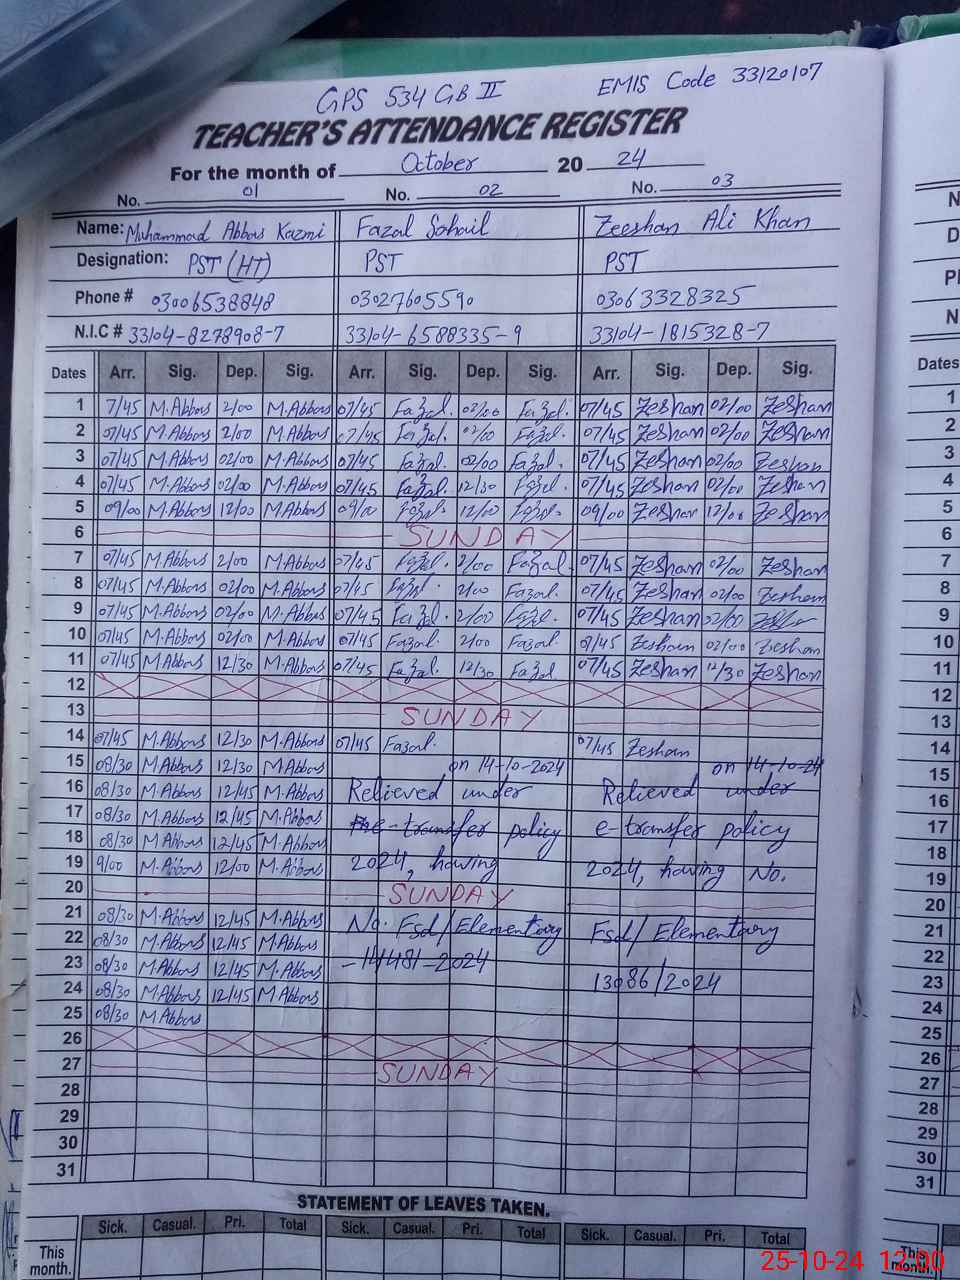 GPS 534 GB II EMIS Code 33120107
TEACHER'S ATTENDANCE REGISTER
For the month of October 20 24
No. 01 No. 02 No. 03
Name: Muhammad Abbas Kazmi Fazal Sohail Zeeshan Ali Khan
Designation: PST (HT) PST PST
Phone # 03006538848 03027605590 03063328325
N.I.C # 33104-8278908-7 33104-6588335-9 33104-1815328-7
Dates Arr. Sig. Dep. Sig. Arr. Sig. Dep. Sig. Arr. Sig. Dep. Sig. Dates
1 7/45 M.Abbas 2/00 M.Abbas 07/45 Fazal. 02/00 Fazal. 07/45 Zeshan 02/00 Zeshan 1
2 07/45 M.Abbas 2/00 M.Abbas 07/45 Fazal. 02/00 Fazal. 07/45 Zeshan 02/00 Zeshan 2
3 07/45 M.Abbas 02/00 M.Abbas 07/45 Fazal. 02/00 Fazal. 07/45 Zeshan 02/00 Zeshan 3
4 07/45 M.Abbas 02/00 M.Abbas 07/45 Fazal. 12/30 Fazal. 07/45 Zeshan 02/00 Zeshan 4
5 09/00 M.Abbas 12/00 M.Abbas 09/00 Fazal. 12/00 Fazal. 09/00 Zeshan 12/00 Zeshan 5
6 SUNDAY 6
7 07/45 M.Abbas 2/00 M.Abbas 07/45 Fazal. 2/00 Fazal. 07/45 Zeshan 02/00 Zeshan 7
8 07/45 M.Abbas 02/00 M.Abbas 07/45 Fazal. 2/00 Fazal. 07/45 Zeshan 02/00 Zesham 8
9 07/45 M.Abbas 02/00 M.Abbas 07/45 Fazal. 2/00 Fazal. 07/45 Zeshan 02/00 9
10 07/45 M.Abbas 02/00 M.Abbas 07/45 Fazal. 2/00 Fazal. 07/45 Zesham 02/00 Zesham 10
11 07/45 M.Abbas 12/30 M.Abbas 07/45 Fazal. 12/30 Fazal 07/45 Zeshan 12/30 Zeshan 11
12 12
13 SUNDAY 13
14 07/45 M.Abbas 12/30 M.Abbas 07/45 Fazal. 07/45 Zeshan 14
15 08/30 M.Abbas 12/30 M.Abbas on 14-10-2024 on 14-10-24 15
16 08/30 M.Abbas 12/45 M.Abbas Relieved under Relieved under 16
17 08/30 M.Abbas 12/45 M.Abbas e-transfer policy e-transfer policy 17
18 08/30 M.Abbas 12/45 M.Abbas 18
19 9/00 M.Abbas 12/00 M.Abbas 2024, having 2024, having No. 19
20 SUNDAY 20
21 08/30 M.Abbas 12/45 M.Abbas No. Fsd/Elementary Fsd/Elementary 21
22 08/30 M.Abbas 12/45 M.Abbas 22
23 08/30 M.Abbas 12/45 M.Abbas -14481-2024 13086/2024 23
24 08/30 M.Abbas 12/45 M.Abbas 24
25 08/30 M.Abbas 25
26 26
27 SUNDAY 27
28 28
29 29
30 30
31 31
STATEMENT OF LEAVES TAKEN.
Sick. Casual. Pri. Total Sick. Casual. Pri. Total Sick. Casual. Pri. Total
This month. This month.
25-10-24 12:00